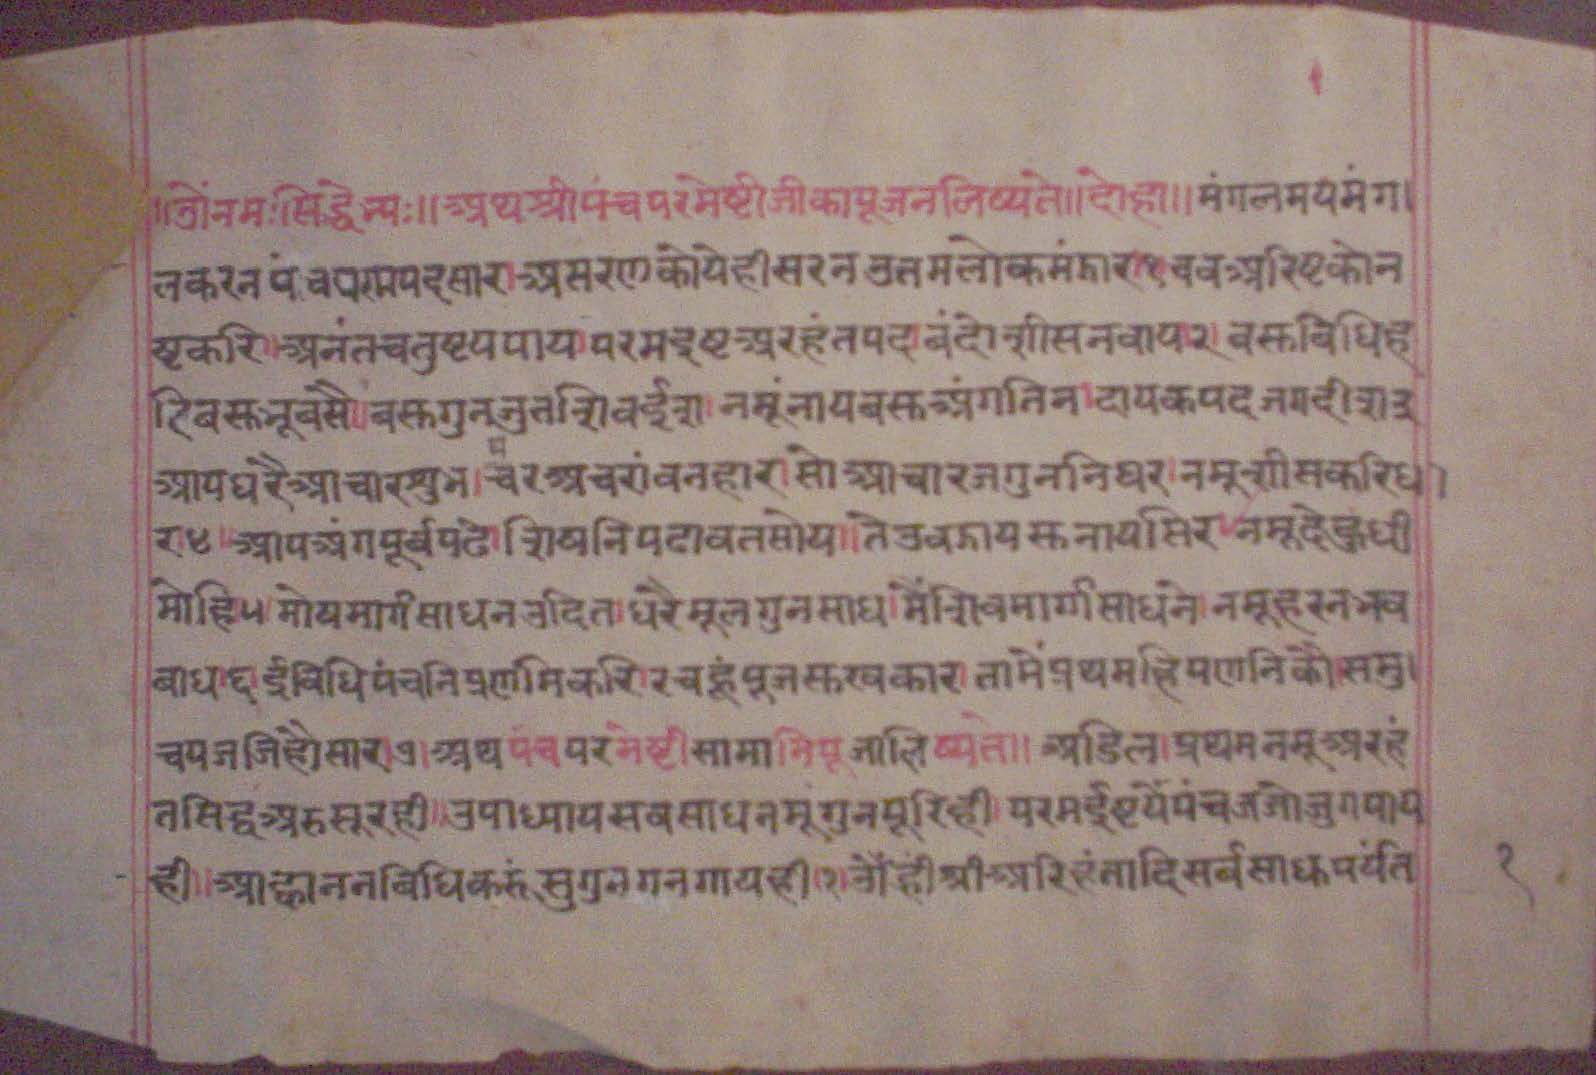 ॥ओंनमःसिद्धेभ्यः॥अथश्रीपंचपरमेष्टीजीकापूजनलिष्यते॥दोहा॥मंगलमयमंग।
लकरनपंचपरमपदसार।असरणकोयेहीसरनउतमलोकमंझार।१ववअरिष्टकोन
ष्टकरि।अनंतचतुष्टयपाय।परमइष्टअरहंतपद।वंदोशीसनवाय२।वसुविधिह
रिवसुभूवसै।वसुगुनजुतशिवईश।नमूंनायवसुअंगतिन।दायकपदजगदीश३
आपधरैआचारशुभ।पंचरअचरांवनहार।सोआचारजगुननिधर।नमूशीसकरिध
र४।आपअंगपूर्वपढे।शिष्यनिपढावतसोय।तेउवझायसुनायसिर।नमूदेहुधी
मोहि५मोषमार्गसाधनउदित।धरैमूलगुनसाध।मैंशिवमार्गसाधने।नमूहरनभव
बाध।६ईविधिपंचनिप्रणमिकरि।रचहूंपूजसुखकार।तामेंप्रथमहिपणनिकौ।समु।
चयजजिहौसार।७।अथपंचपरमेष्टीसामामिपूजालिष्यते॥अडिल।प्रथमनमूअरहं
तसिद्धअरुसूरही।उपाध्यायसवसाधनमूंगुनमूरिही।परमईष्टयेपंचजजोजुगपाय
ही।आह्वाननविधिकरूंसुगुनगनगायही।१।ओंह्रींश्रीअरिहंतादिसर्वसाधुपर्यंति
१